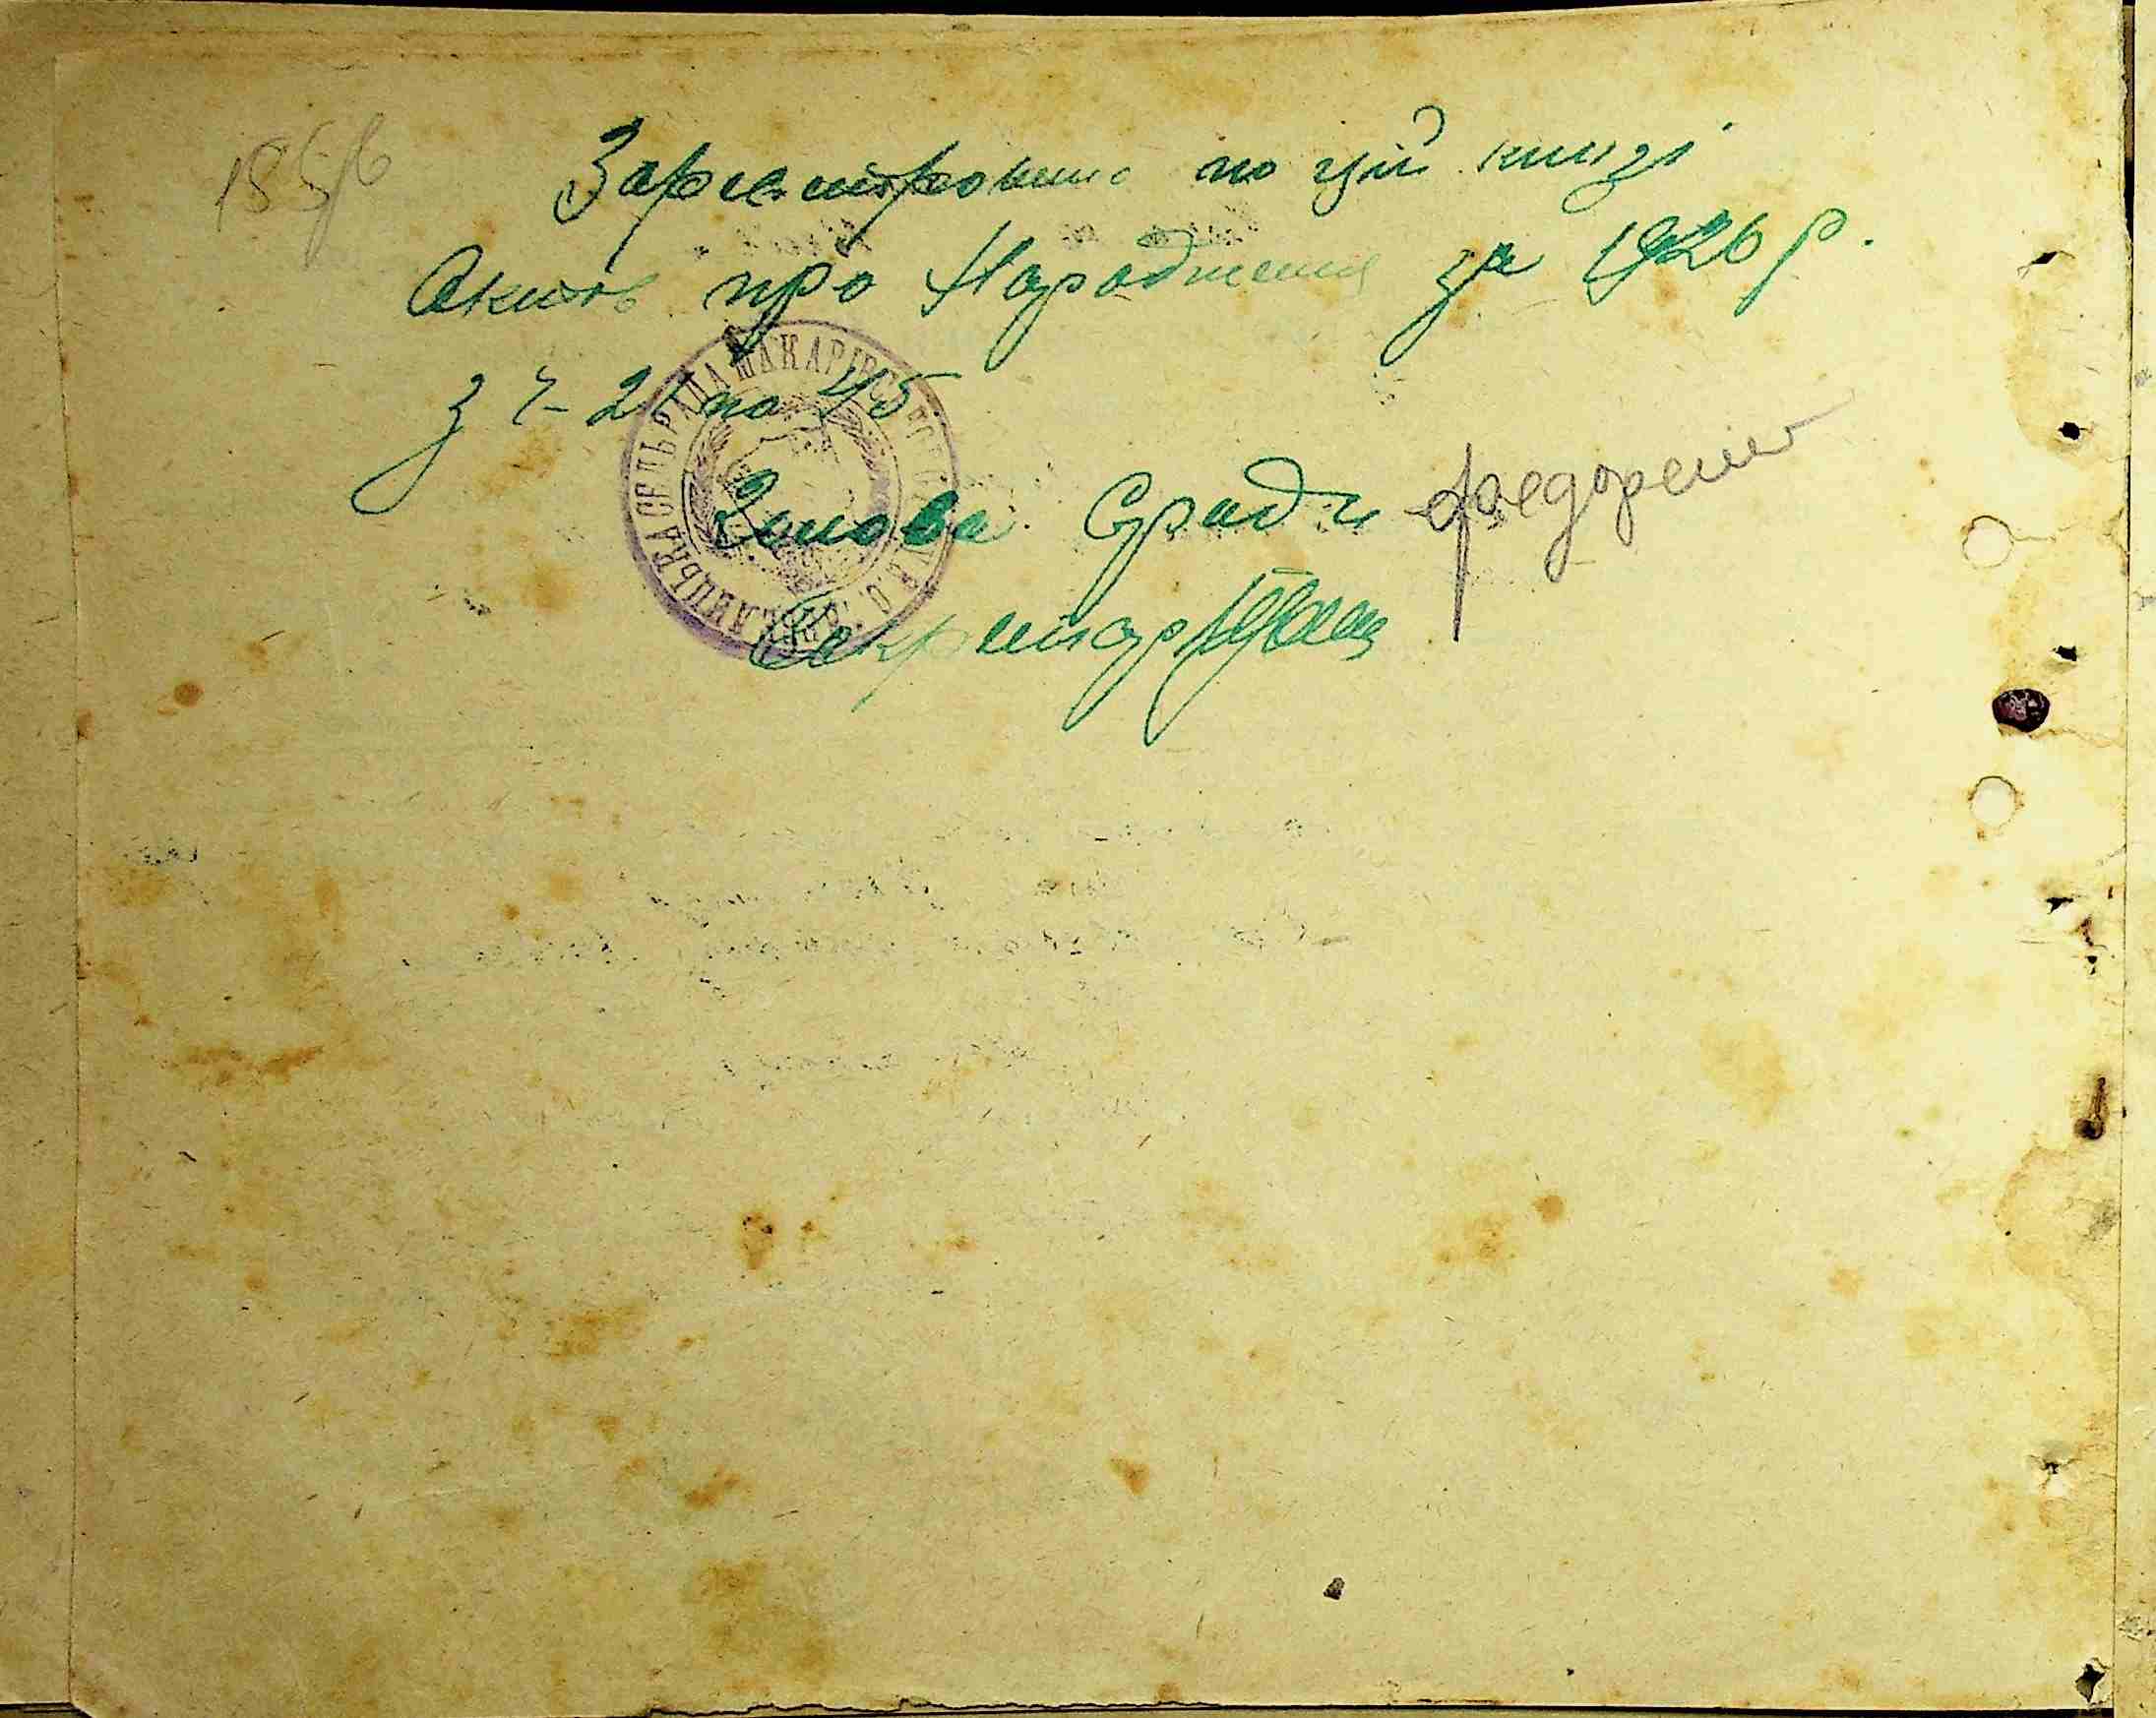 185/б
Зареєстровано по цій книзі
Актів про Народження за 1926 р.
з ч- 21 по 45
Голова С/ради Федоренко
Секретар
СЕЛЬРАДА МАКАРІВСЬК